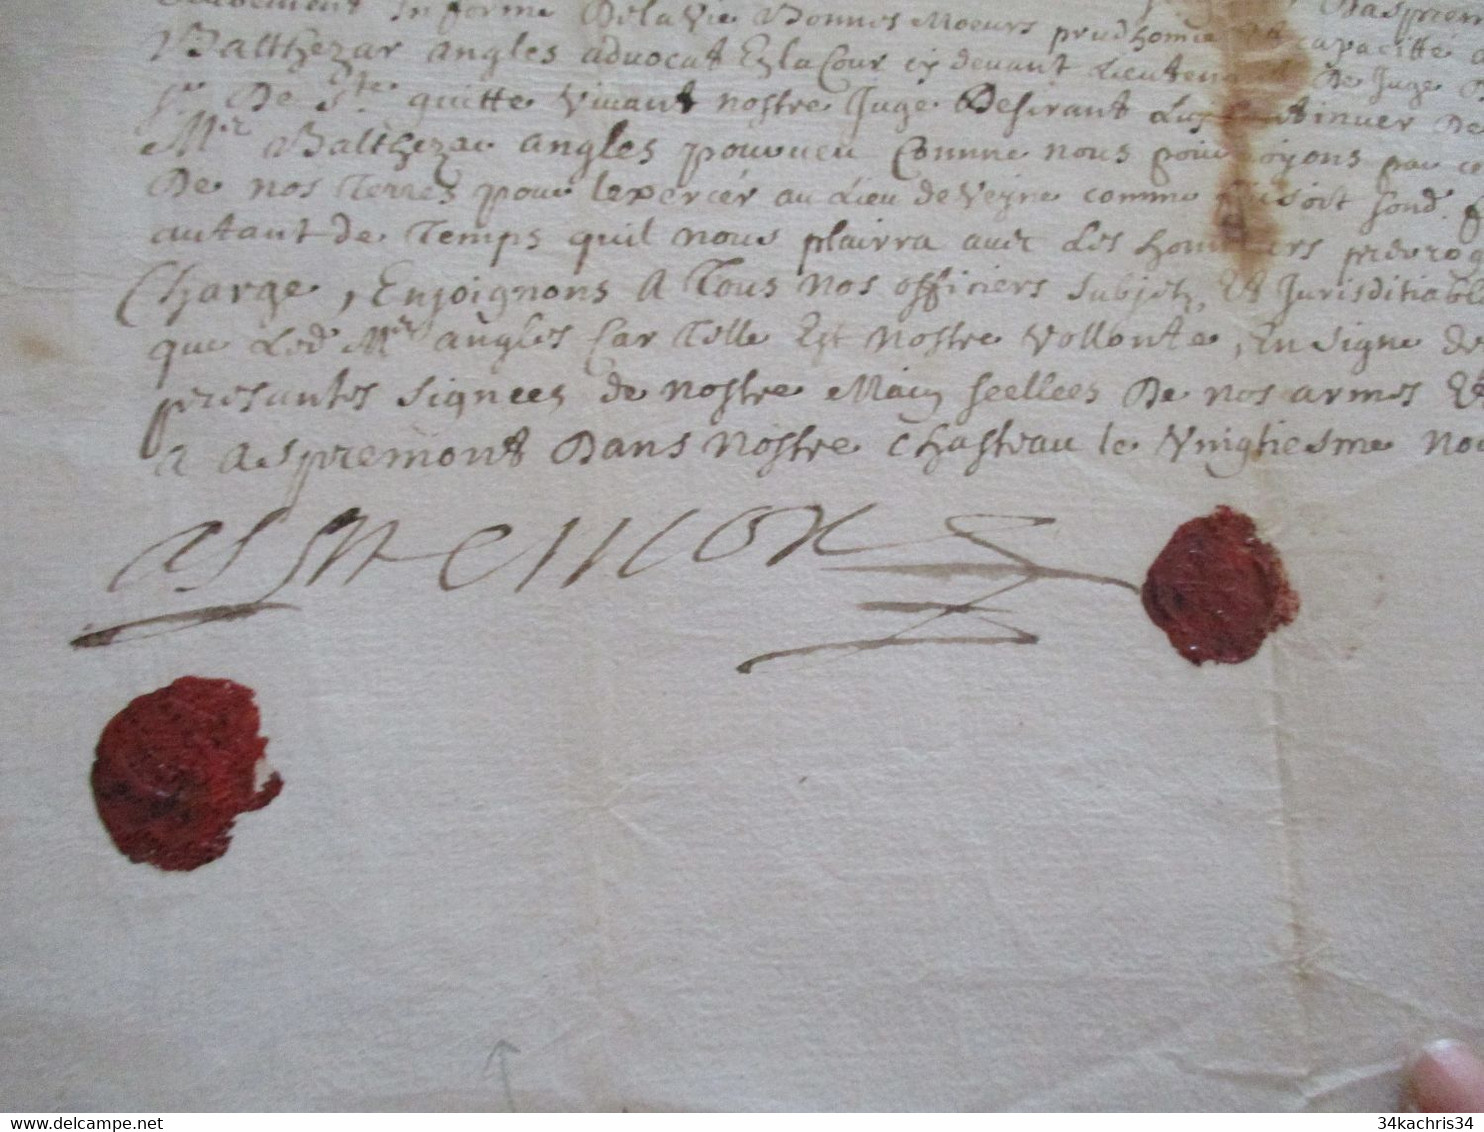 Informé De la Vie Bonnes Moeurs prudhomie Et capacitté
Balthezar angles advocat En la Cour cy devant Lieutenant De Juge
Sr De Ste quitte vivant nostre Juge Desirant
Mre Balthezar angles pourveu Comme nous pourvoyons par
De nos Terres pour lexercer au Lieu de Veyne comme soit fond
autant de Temps quil nous plairra avec Les honneurs
Charge, Enjoignons A Tous nos officiers subjetz, Et Jurisditiabl
que Led Mre angles Car Telle Est nostre vollonte, En signe de
presantes signees de nostre Main seellees De nos armes Et
a aspremont Dans nostre chasteau le vingtiesme
aspremont
34kachris34
www.delcampe.net